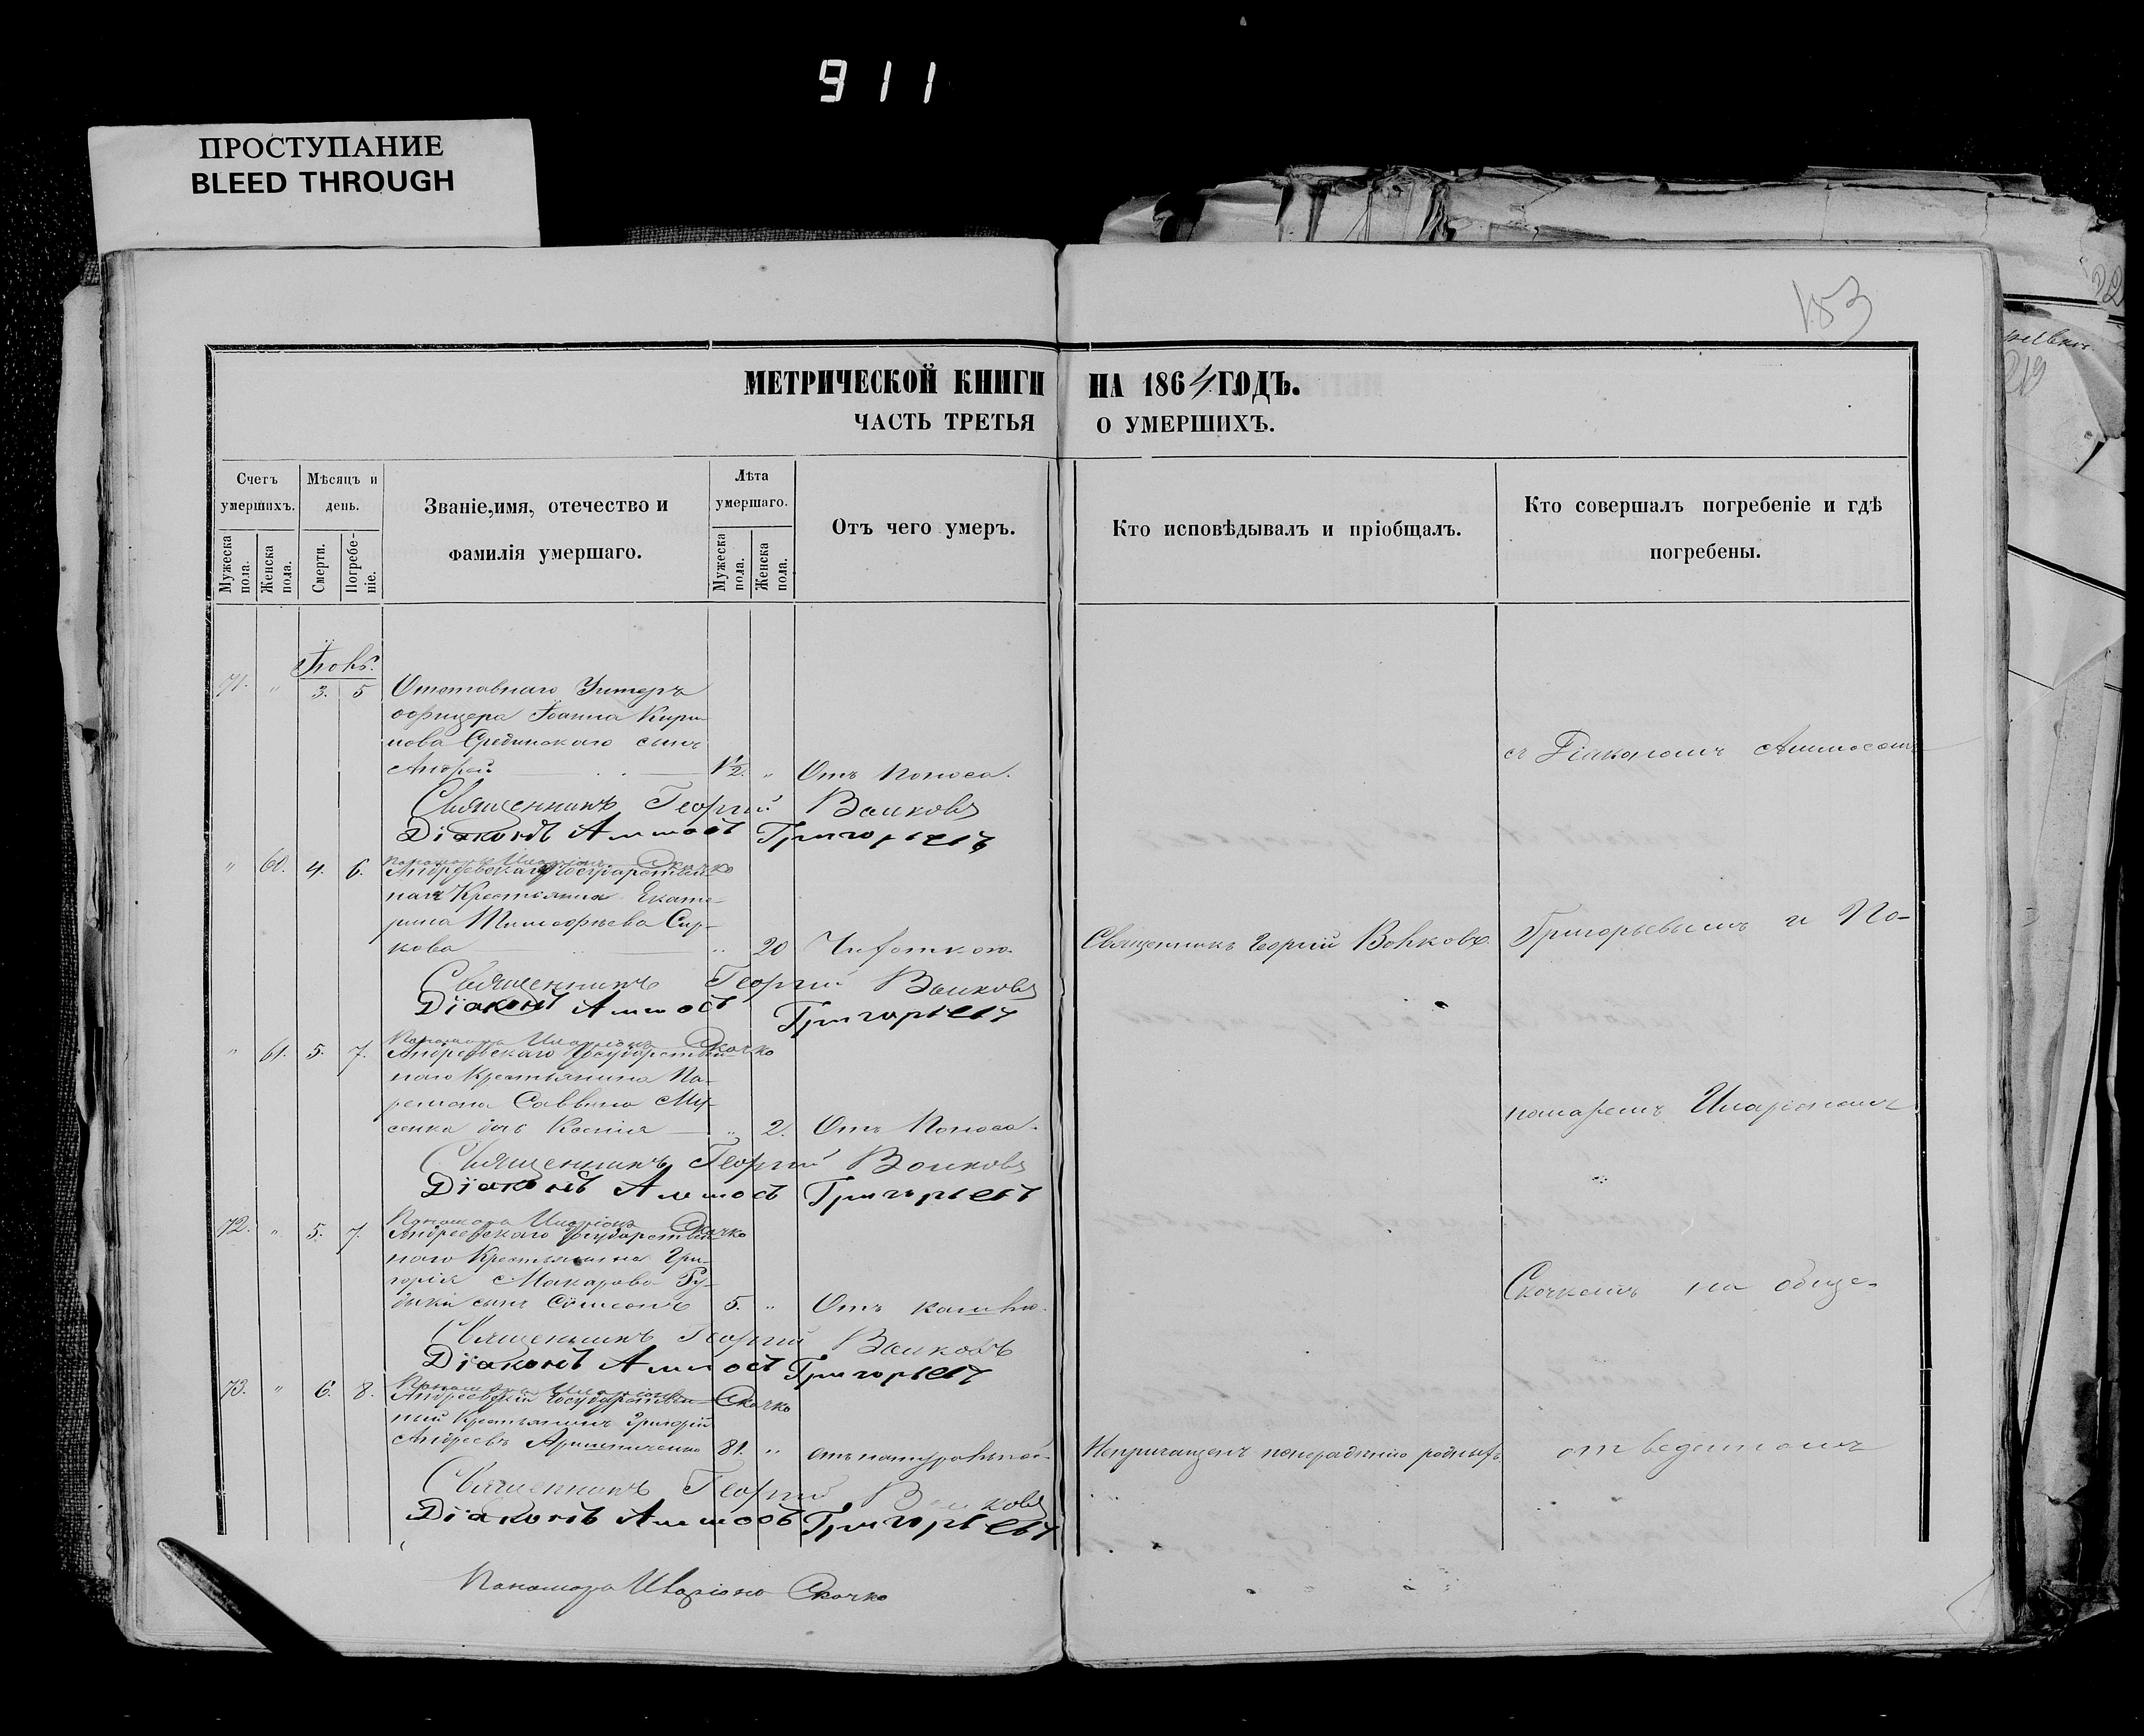 911
ПРОСТУПАНИЕ
BLEED THROUGH
183
МЕТРИЧЕСКОЙ КНИГИ НА 1864 ГОДЪ.
ЧАСТЬ ТРЕТЬЯ О УМЕРШИХЪ.
Счетъ умершихъ.
Мужеска пола.
Женска пола.
Мѣсяцъ и день.
Смерти.
Погребе-
ніе.
Званіе, имя, отечество и
фамилія умершаго.
Лѣта умершаго.
Мужеска пола.
Женска пола.
Отъ чего умеръ.
Кто исповѣдывалъ и пріобщалъ.
Кто совершалъ погребеніе и гдѣ
погребены.
71. " 3. 5 Отставнаго Унтеръ
офицера Іоанна Кири-
лова Срединскаго сынъ
Андрей 1½. " Отъ поноса.
съ Діакономъ Аммосомъ
Священникъ Георгій Волковъ
Діаконъ Аммосъ Григорьевъ
Пономарь Иларіонъ Скочко
" 60. 4. 6. Андреевская Государствен-
ная Крестьянка Екате-
рина Тимофѣева Сир-
кова " 20 Чахоткою.
Священникъ Георгій Волковъ
Григорьевымъ и По-
Священникъ Георгій Волковъ
Діаконъ Аммосъ Григорьевъ
Пономарь Иларіонъ Скочко
" 61. 5. 7. Андреевскаго Государствен-
наго Крестьянина Па-
Саввина Му-
сенка дочь Ксенія " 2. Отъ поноса.
номаремъ Иларіономъ
Священникъ Георгій Волковъ
Діаконъ Аммосъ Григорьевъ
Пономарь Иларіонъ Скочко
72. " 5. 7. Андреевскаго Государствен-
наго Крестьянина Гри-
горія Макарова
сынъ Сѵмеонъ 5. " Отъ кашлю.
Скочкомъ на обще-
Священникъ Георгій Волковъ
Діаконъ Аммосъ Григорьевъ
Пономарь Иларіонъ Скочко
73. " 6. 8. Андреевскій Государствен-
ный Крестьянинъ Григорій
Андреевъ 81. " отъ натуральной
Непричащенъ понерадѣнію родныхъ
отведенномъ
Священникъ Георгій Волковъ
Діаконъ Аммосъ Григорьевъ
Пономарь Иларіонъ Скочко